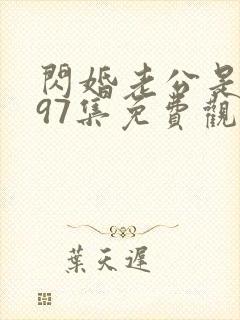 閃婚老公是
97集免費觀
葉天遲